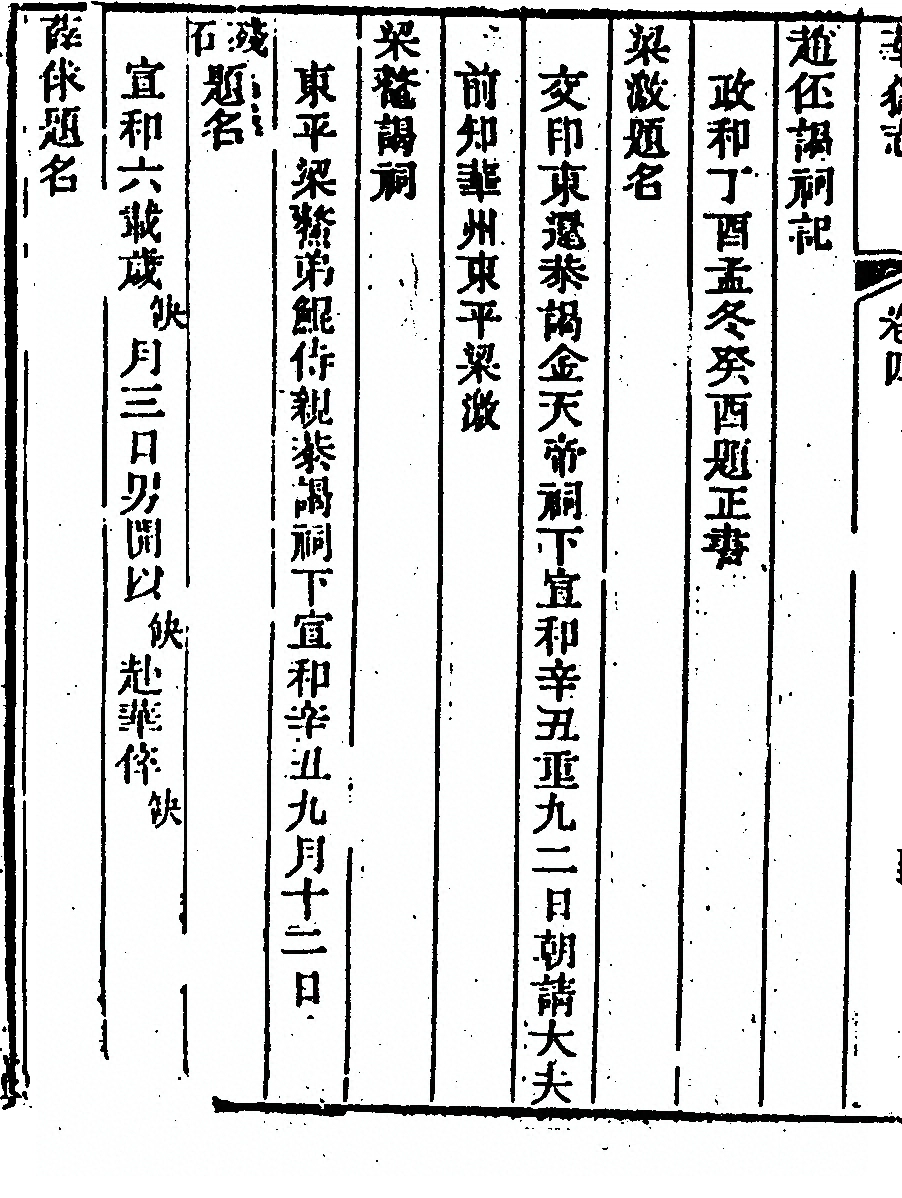 華嶽志 卷四
趙伾謁祠記
政和丁酉孟冬癸酉題正書
梁激題名
交印東還恭謁金天帝祠下宣和辛丑重九二日朝請大夫
前知華州東平梁激
梁鰲謁祠
東平梁鰲弟鯤侍親恭謁祠下宣和辛丑九月十二日
殘石題名
宣和六載歲缺月三日男開以缺赴華倅缺
薛俅題名